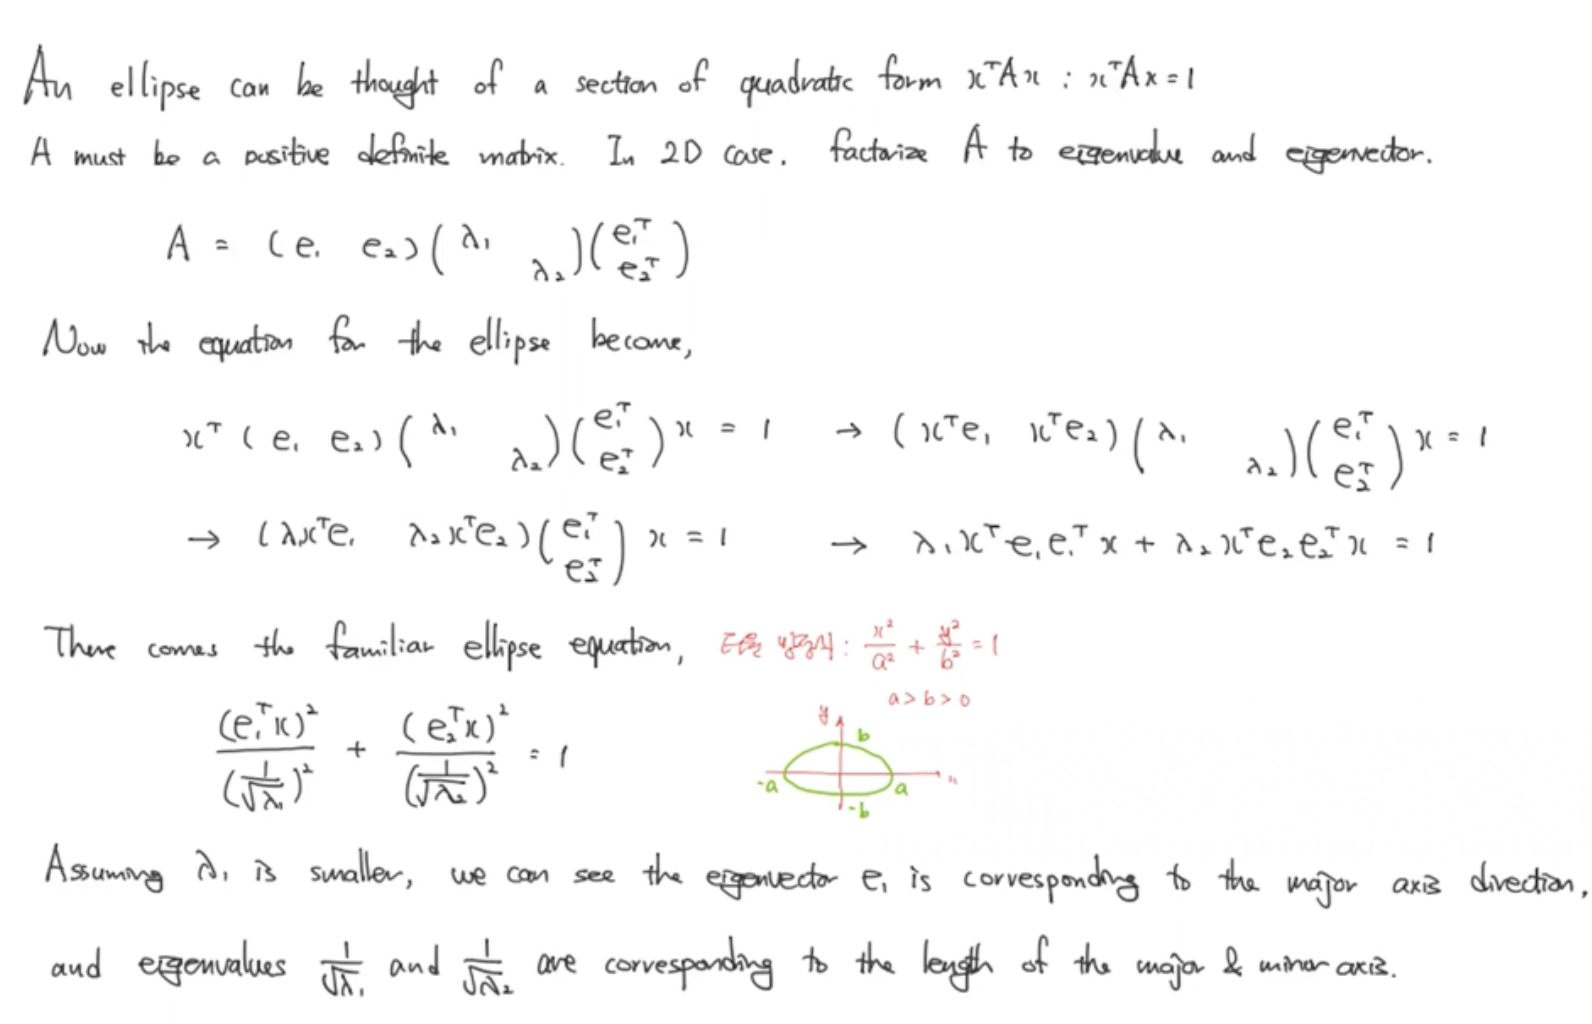 An ellipse can be thought of a section of quadratic form xᵀAx : xᵀAx = 1
A must be a positive definite matrix. In 2D case, factorize A to eigenvalue and eigenvector.
A = (e₁ e₂)(λ₁ λ₂)(e₁ᵀ e₂ᵀ)
Now the equation for the ellipse become,
xᵀ(e₁ e₂)(λ₁ λ₂)(e₁ᵀ e₂ᵀ)x = 1 → (xᵀe₁ xᵀe₂)(λ₁ λ₂)(e₁ᵀ e₂ᵀ)x = 1
→ (λ₁xᵀe₁ λ₂xᵀe₂)(e₁ᵀ e₂ᵀ)x = 1 → λ₁xᵀe₁e₁ᵀx + λ₂xᵀe₂e₂ᵀx = 1
There comes the familiar ellipse equation,
타원 방정식 : x²/a² + y²/b² = 1
a > b > 0
(e₁ᵀx)²/(1/√λ₁)² + (e₂ᵀx)²/(1/√λ₂)² = 1
y
b
-a
a
x
-b
Assuming λ₁ is smaller, we can see the eigenvector e₁ is corresponding to the major axis direction,
and eigenvalues 1/√λ₁ and 1/√λ₂ are corresponding to the length of the major & minor axis.